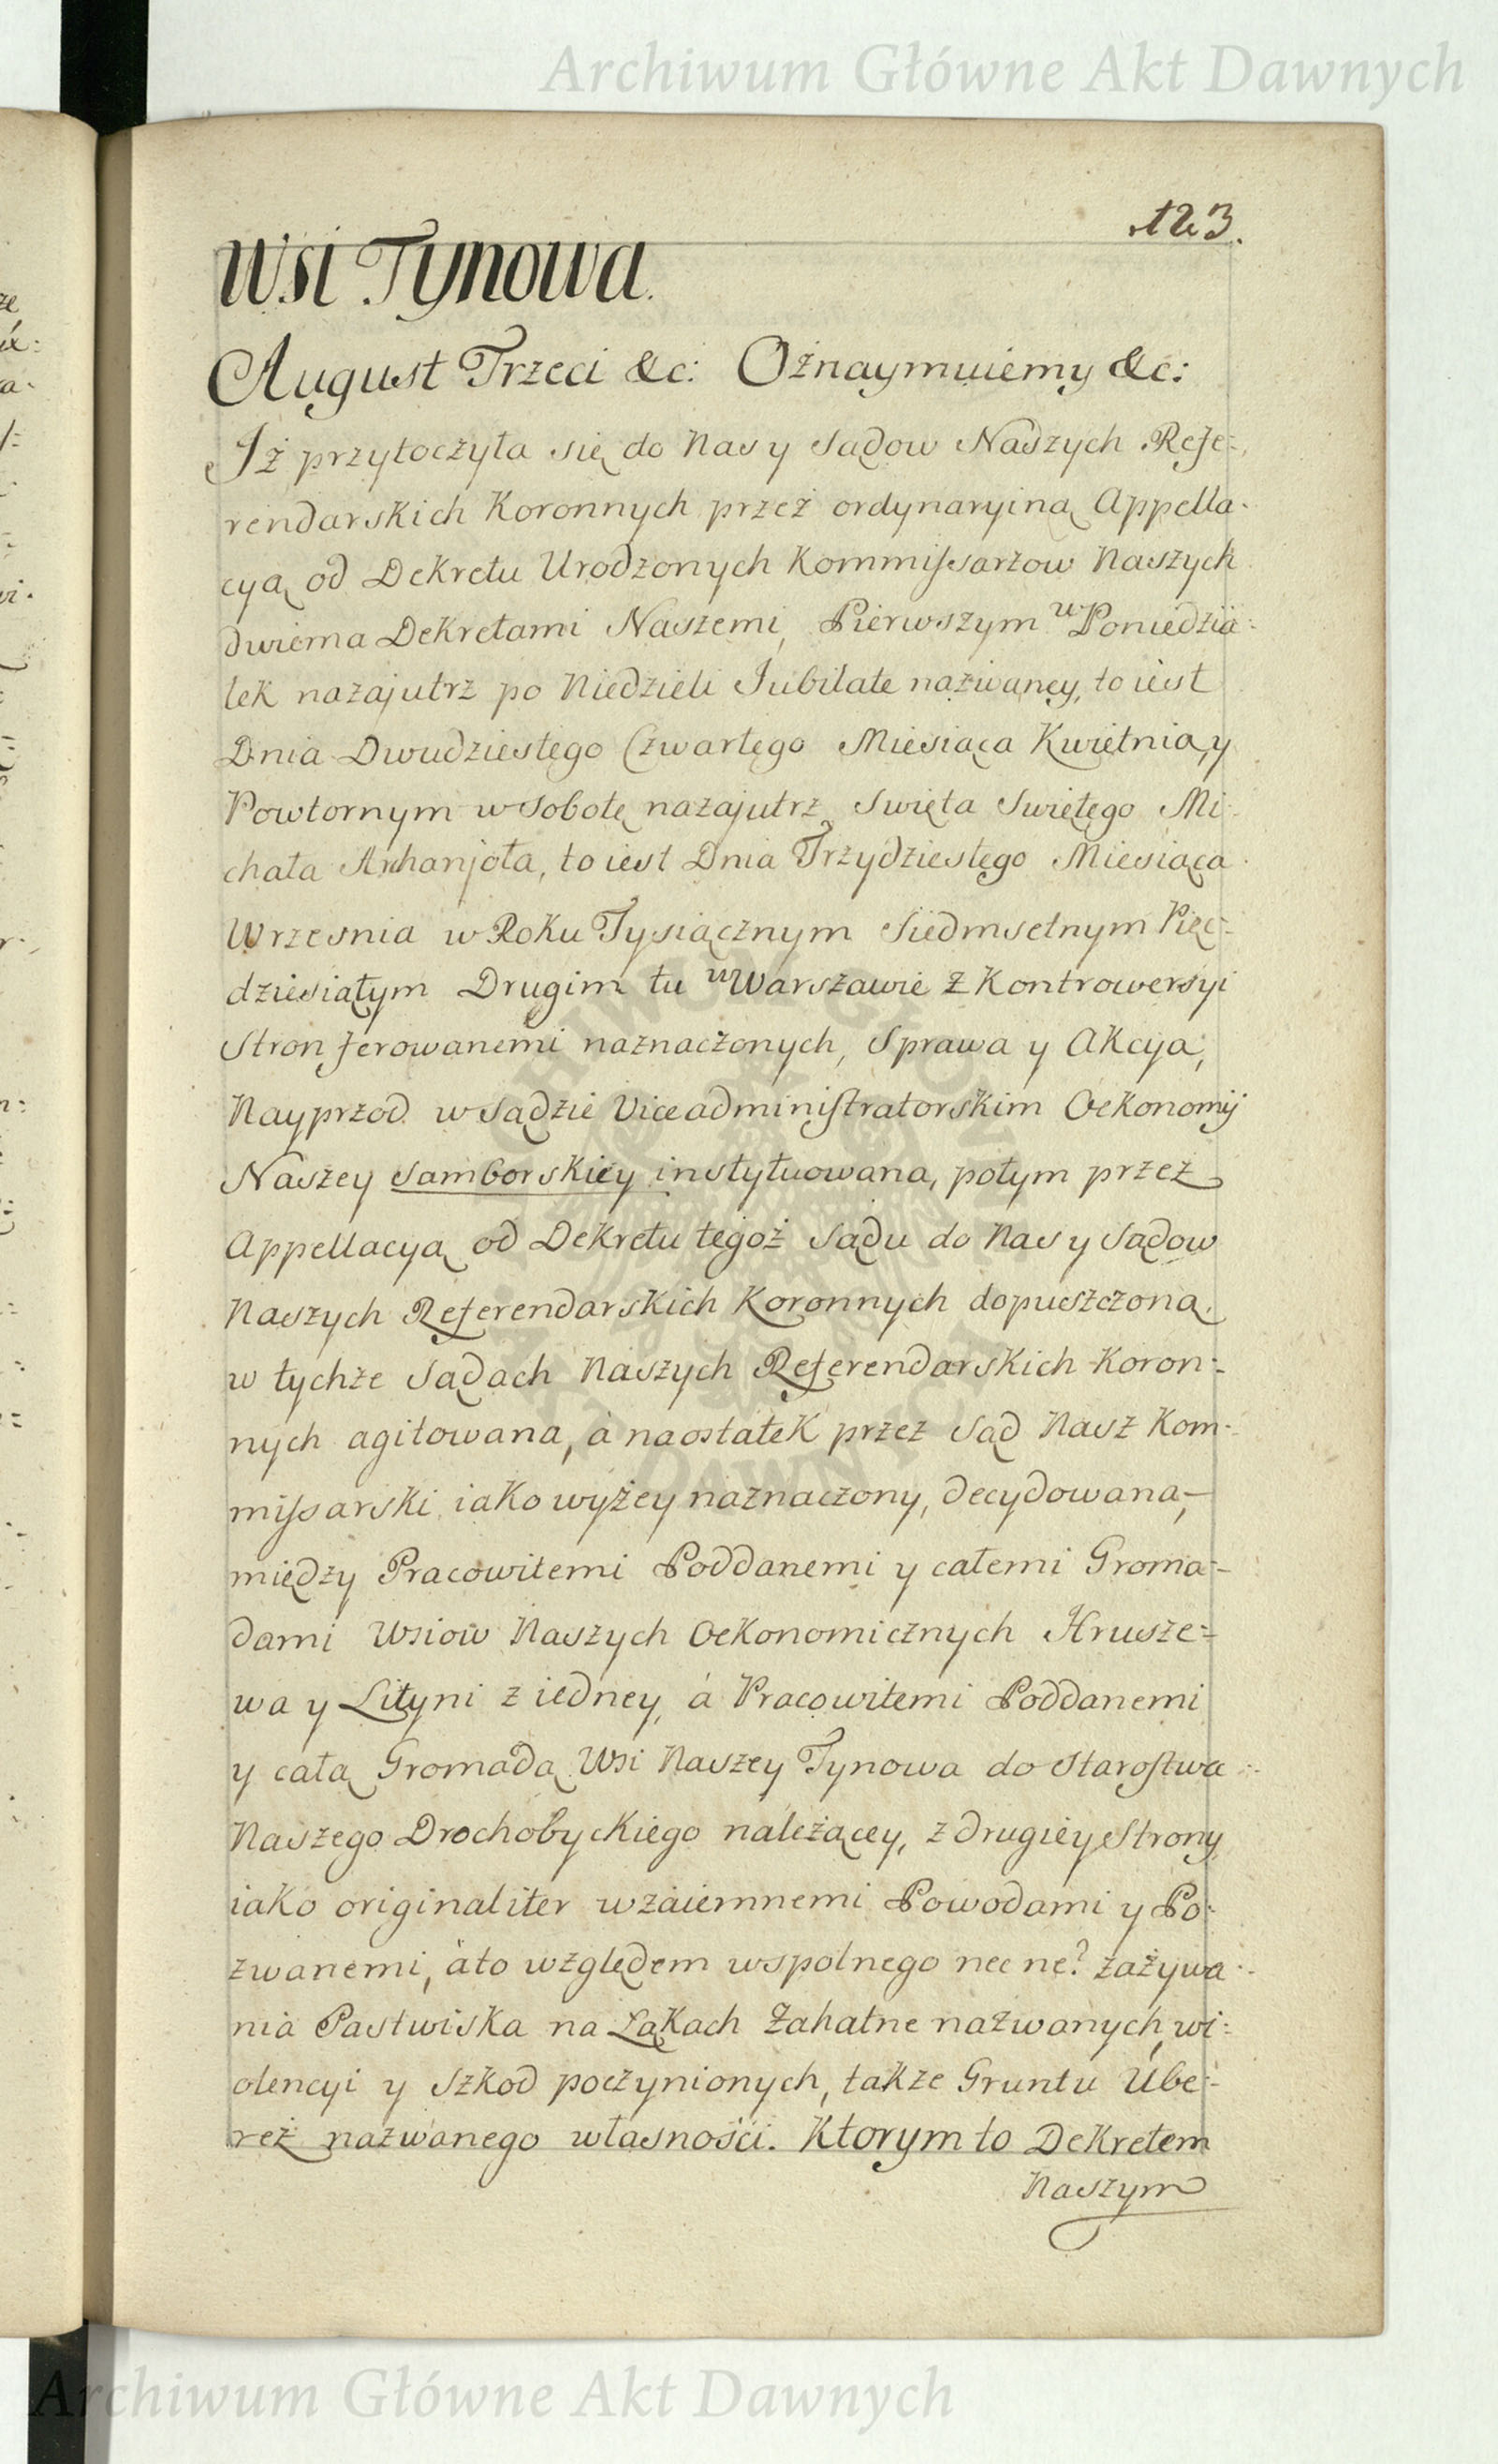 Archiwum Główne Akt Dawnych
123.
Wsi Tynowa.
August Trzeci &c: Oźnaymuiemy &c:
Iż przytoczyła się do Nas y Sądow Naszych Refe=
rendarskich Koronnych przeż ordynaryiną Appella-
cyą od Dekretu Urodzonych Kommissarzow Naszych
dwiema Dekretami Naszemi, Pierwszym w Poniedzia-
łek nazajutrz po Niedzieli Jubilate nazwaney, to iest
Dnia Dwudziestego Czwartego Miesiąca Kwietnia, y
Powtornym w Sobotę nazajutrz Swięta Swiętego Mi-
chała Arhanjoła, to iest Dnia Trzydziestego Miesiąca
Wrzesnia w Roku Tysiącznym Siedmsetnym Pięc=
dziesiątym Drugim tu w Warszawie z Kontrowersyi
Stron ferowanemi naznaczonych, Sprawa y Akcya,
Nayprzod w Sądzie Viceadministratorskim Oekonomij
Naszey Samborskiey instytuowana, potym przez
Appellacyą od Dekretu tegoż Sądu do Nas y Sądow
Naszych Referendarskich Koronnych dopuszczoną,
w tychże Sądach Naszych Referendarskich Koron=
nych agitowana, á naostatek przez Sąd Nasz Kom-
missarski, iako wyżey naznaczony, decydowana,
między Pracowitemi Poddanemi y całemi Groma=
dami Wsiow Naszych Oekonomicznych Hrusze=
wa y Lityni z iedney, á Pracowitemi Poddanemi
y całą Gromadą Wsi Naszey Tynowa do Starostwa
Naszego Drochobyckiego należącey, z drugiey Strony
iako originaliter wzaiemnemi Powodami y Po=
zwanemi, áto względem wspolnego nec ne? zażywa-
nia Pastwiska na Łąkach Zahatne nazwanych, wi=
olencyi y szkod poczynionych, także Gruntu Ube=
reż nazwanego własności. Ktorym to Dekretem
Naszym
Archiwum Główne Akt Dawnych